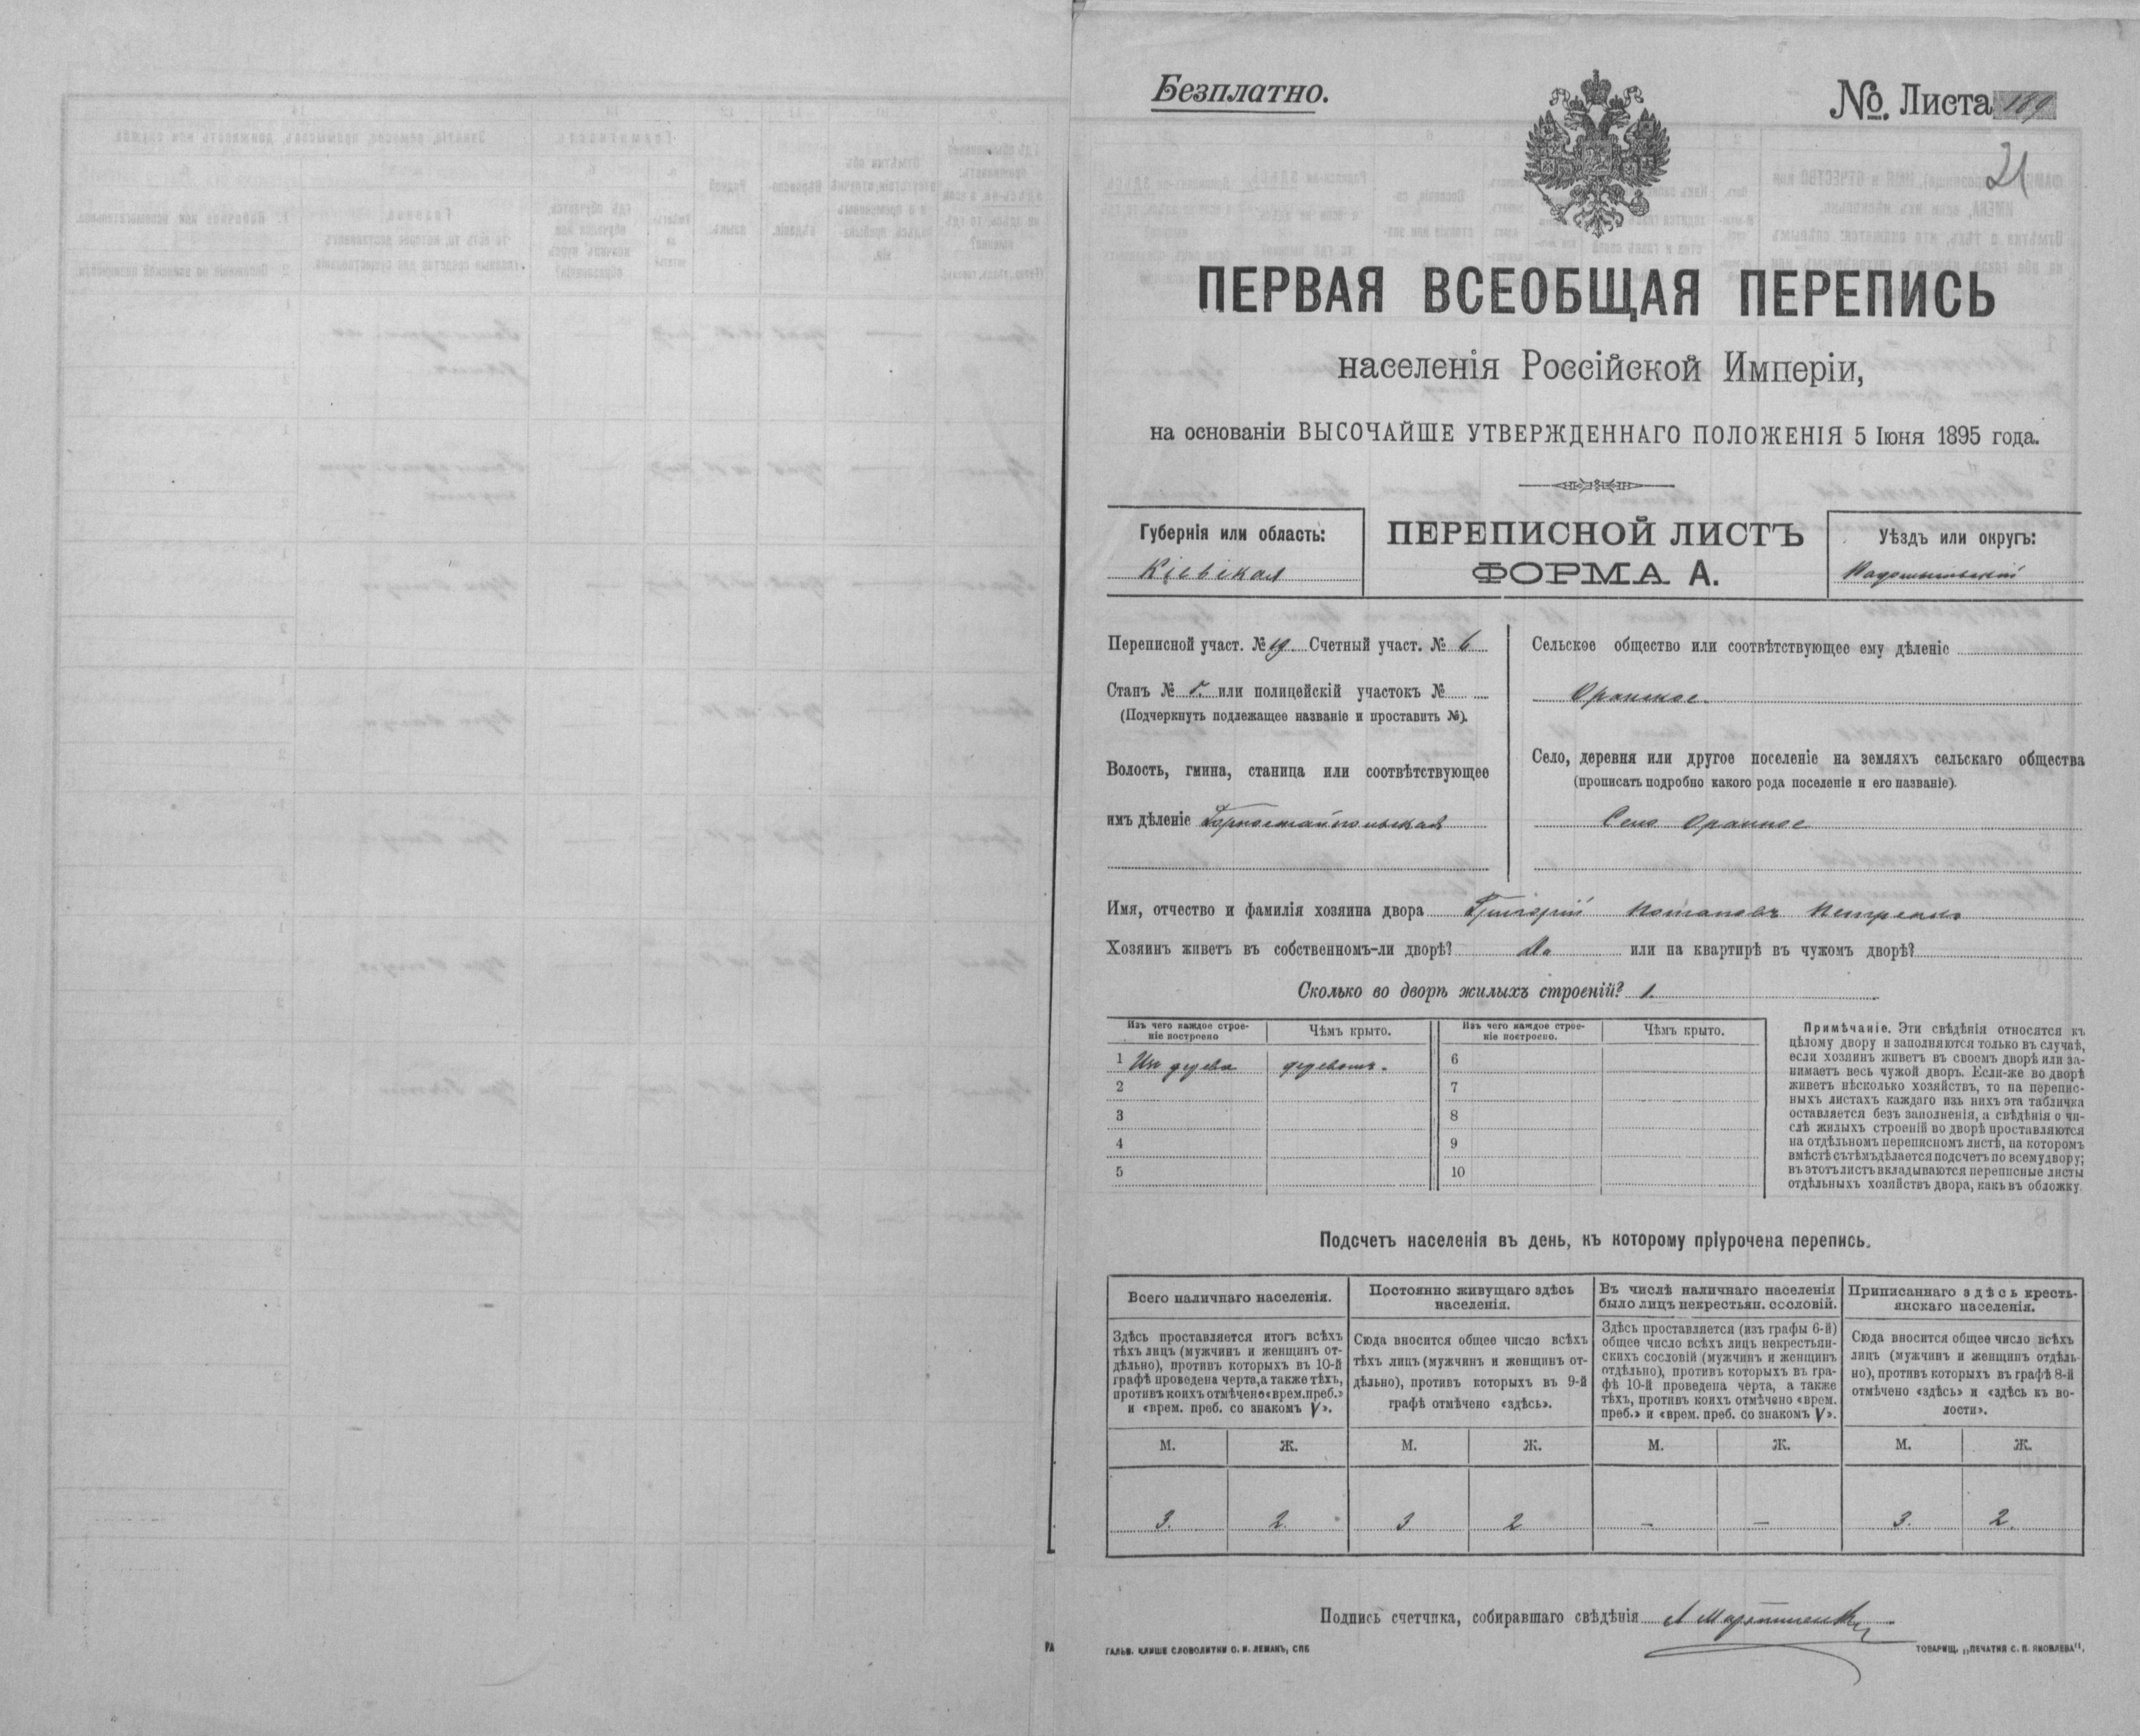 Безплатно.
№. Листа 189
21
ПЕРВАЯ ВСЕОБЩАЯ ПЕРЕПИСЬ
населенія Россійской Имперіи,
на основаніи ВЫСОЧАЙШЕ УТВЕРЖДЕННАГО ПОЛОЖЕНІЯ 5 Іюня 1895 года.
Губернія или область:
Кіевская
ПЕРЕПИСНОЙ ЛИСТЪ
ФОРМА А.
Уѣздъ или округъ:
Радомысльскій
Переписной участ. № 19 Счетный участ. № 6
Станъ № или полицейскій участокъ №
(Подчеркнуть подлежащее названіе и проставить №).
Волость, гмина, станица или соотвѣтствующее
имъ дѣленіе Горностайпольская
Сельское общество или соотвѣтствующее ему дѣленіе
Оранное
Село, деревня или другое поселеніе на земляхъ сельскаго общества
(прописать подробно какого рода поселеніе и его названіе).
Село Оранное
Имя, отчество и фамилія хозяина двора Григорій Потаповъ Петренко
Хозяинъ живетъ въ собственномъ-ли дворѣ? Да или на квартирѣ въ чужомъ дворѣ?
Сколько во дворѣ жилыхъ строеній? 1.
Изъ чего каждое строе-
ніе построено
Чѣмъ крыто.
Изъ чего каждое строе-
ніе построено.
Чѣмъ крыто.
1 Изъ дерева деревомъ. 6
2 7
3 8
4 9
5 10
Примѣчаніе. Эти свѣдѣнія относятся къ
цѣлому двору и заполняются только въ случаѣ,
если хозяинъ живетъ въ своемъ дворѣ или за-
нимаетъ весь чужой дворъ. Если-же во дворѣ
живетъ нѣсколько хозяйствъ, то на перепис-
ныхъ листахъ каждаго изъ нихъ эта табличка
оставляется безъ заполненія, а свѣдѣнія о чи-
слѣ жилыхъ строеній во дворѣ проставляются
на отдѣльномъ переписномъ листѣ, на которомъ
вмѣстѣ съ тѣмъ дѣлается подсчетъ по всему двору;
въ этотъ листъ вкладываются переписные листы
отдѣльныхъ хозяйствъ двора, какъ въ обложку.
Подсчетъ населенія въ день, къ которому пріурочена перепись.
Всего наличнаго населенія.
Постоянно живущаго здѣсь
населенія.
Въ числѣ наличнаго населенія
было лицъ некрестьян. сословій.
Приписаннаго здѣсь кресть-
янскаго населенія.
Здѣсь проставляется итогъ всѣхъ
тѣхъ лицъ (мужчинъ и женщинъ от-
дѣльно), противъ которыхъ въ 10-й
графѣ проведена черта, а также тѣхъ,
противъ коихъ отмѣчено «врем. преб.»
и «врем. преб. со знакомъ V».
Сюда вносится общее число всѣхъ
тѣхъ лицъ (мужчинъ и женщинъ от-
дѣльно), противъ которыхъ въ 9-й
графѣ отмѣчено «здѣсь».
Здѣсь проставляется (изъ графы 6-й)
общее число всѣхъ лицъ некрестьян-
скихъ сословій (мужчинъ и женщинъ
отдѣльно), противъ которыхъ въ гра-
фѣ 10-й проведена черта, а также
тѣхъ, противъ коихъ отмѣчено «врем.
преб.» и «врем. преб. со знакомъ V».
Сюда вносится общее число всѣхъ
лицъ (мужчинъ и женщинъ отдѣль-
но), противъ которыхъ въ графѣ 8-й
отмѣчено «здѣсь» и «здѣсь къ во-
лости».
М. Ж. М. Ж. М. Ж. М. Ж.
3. 2. 3 2 — — 3. 2.
Подпись счетчика, собиравшаго свѣдѣнія
РА
ГАЛЬВ. КЛИШЕ СЛОВОЛИТНИ О. И. ЛЕМАНЪ, СПБ
ТОВАРИЩ. „ПЕЧАТНЯ С. П. ЯКОВЛЕВА".